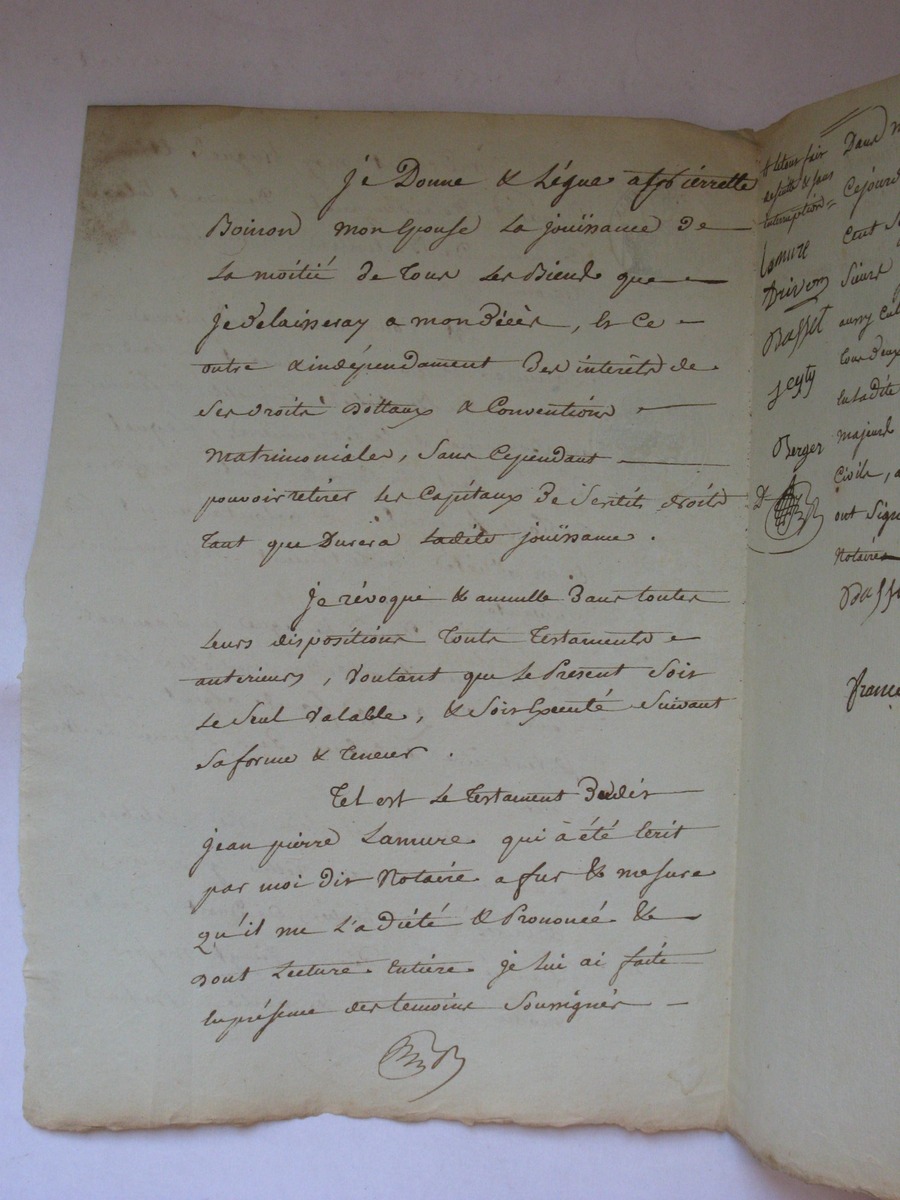 je Donne & Légue a pierrette
Boiron mon Epouse La jouïssance de
La moitié de Tous Les Biens que
je Delaisseray a mon Décès, Et Ce
outre & indépendament Des interêts de
Ses droits Dottaux & Conventions
Matrimoniales, Sans Cependant
pouvoir retirer Les Capitaux De Sesdits droits
Tant que Durera Ladite jouïssance.
je révoque & annulle Dans toutes
Leurs dispositions Touts Testaments
anterieurs, Voulant que Le Present Soit
Le Seul Valable, & Soit Executé Suivant
Sa forme & Teneur.
Tel est Le Testament Dudit
jean pierre Lamure qui à été Ecrit
par moi dit Notaire a fur & mesure
qu'il me L'a Dicté & Prononcé &
dont Lecture Entiére je lui ai faite
En présence des temoins Soussignés
& le tout fait
de suitte & sans
interruption
Lamure
Drivon
Basset
jesty
Berger
Dans
Ce jourd
Cent
Sieurs
aussy
tous deux
En ladite
majeurs
Civils,
ont Signé
Notaires
Bass
france